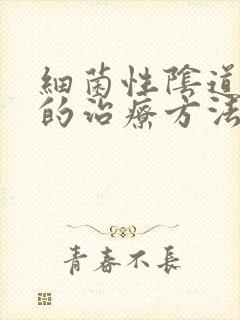 細菌性陰道
的治療方法
青春不長